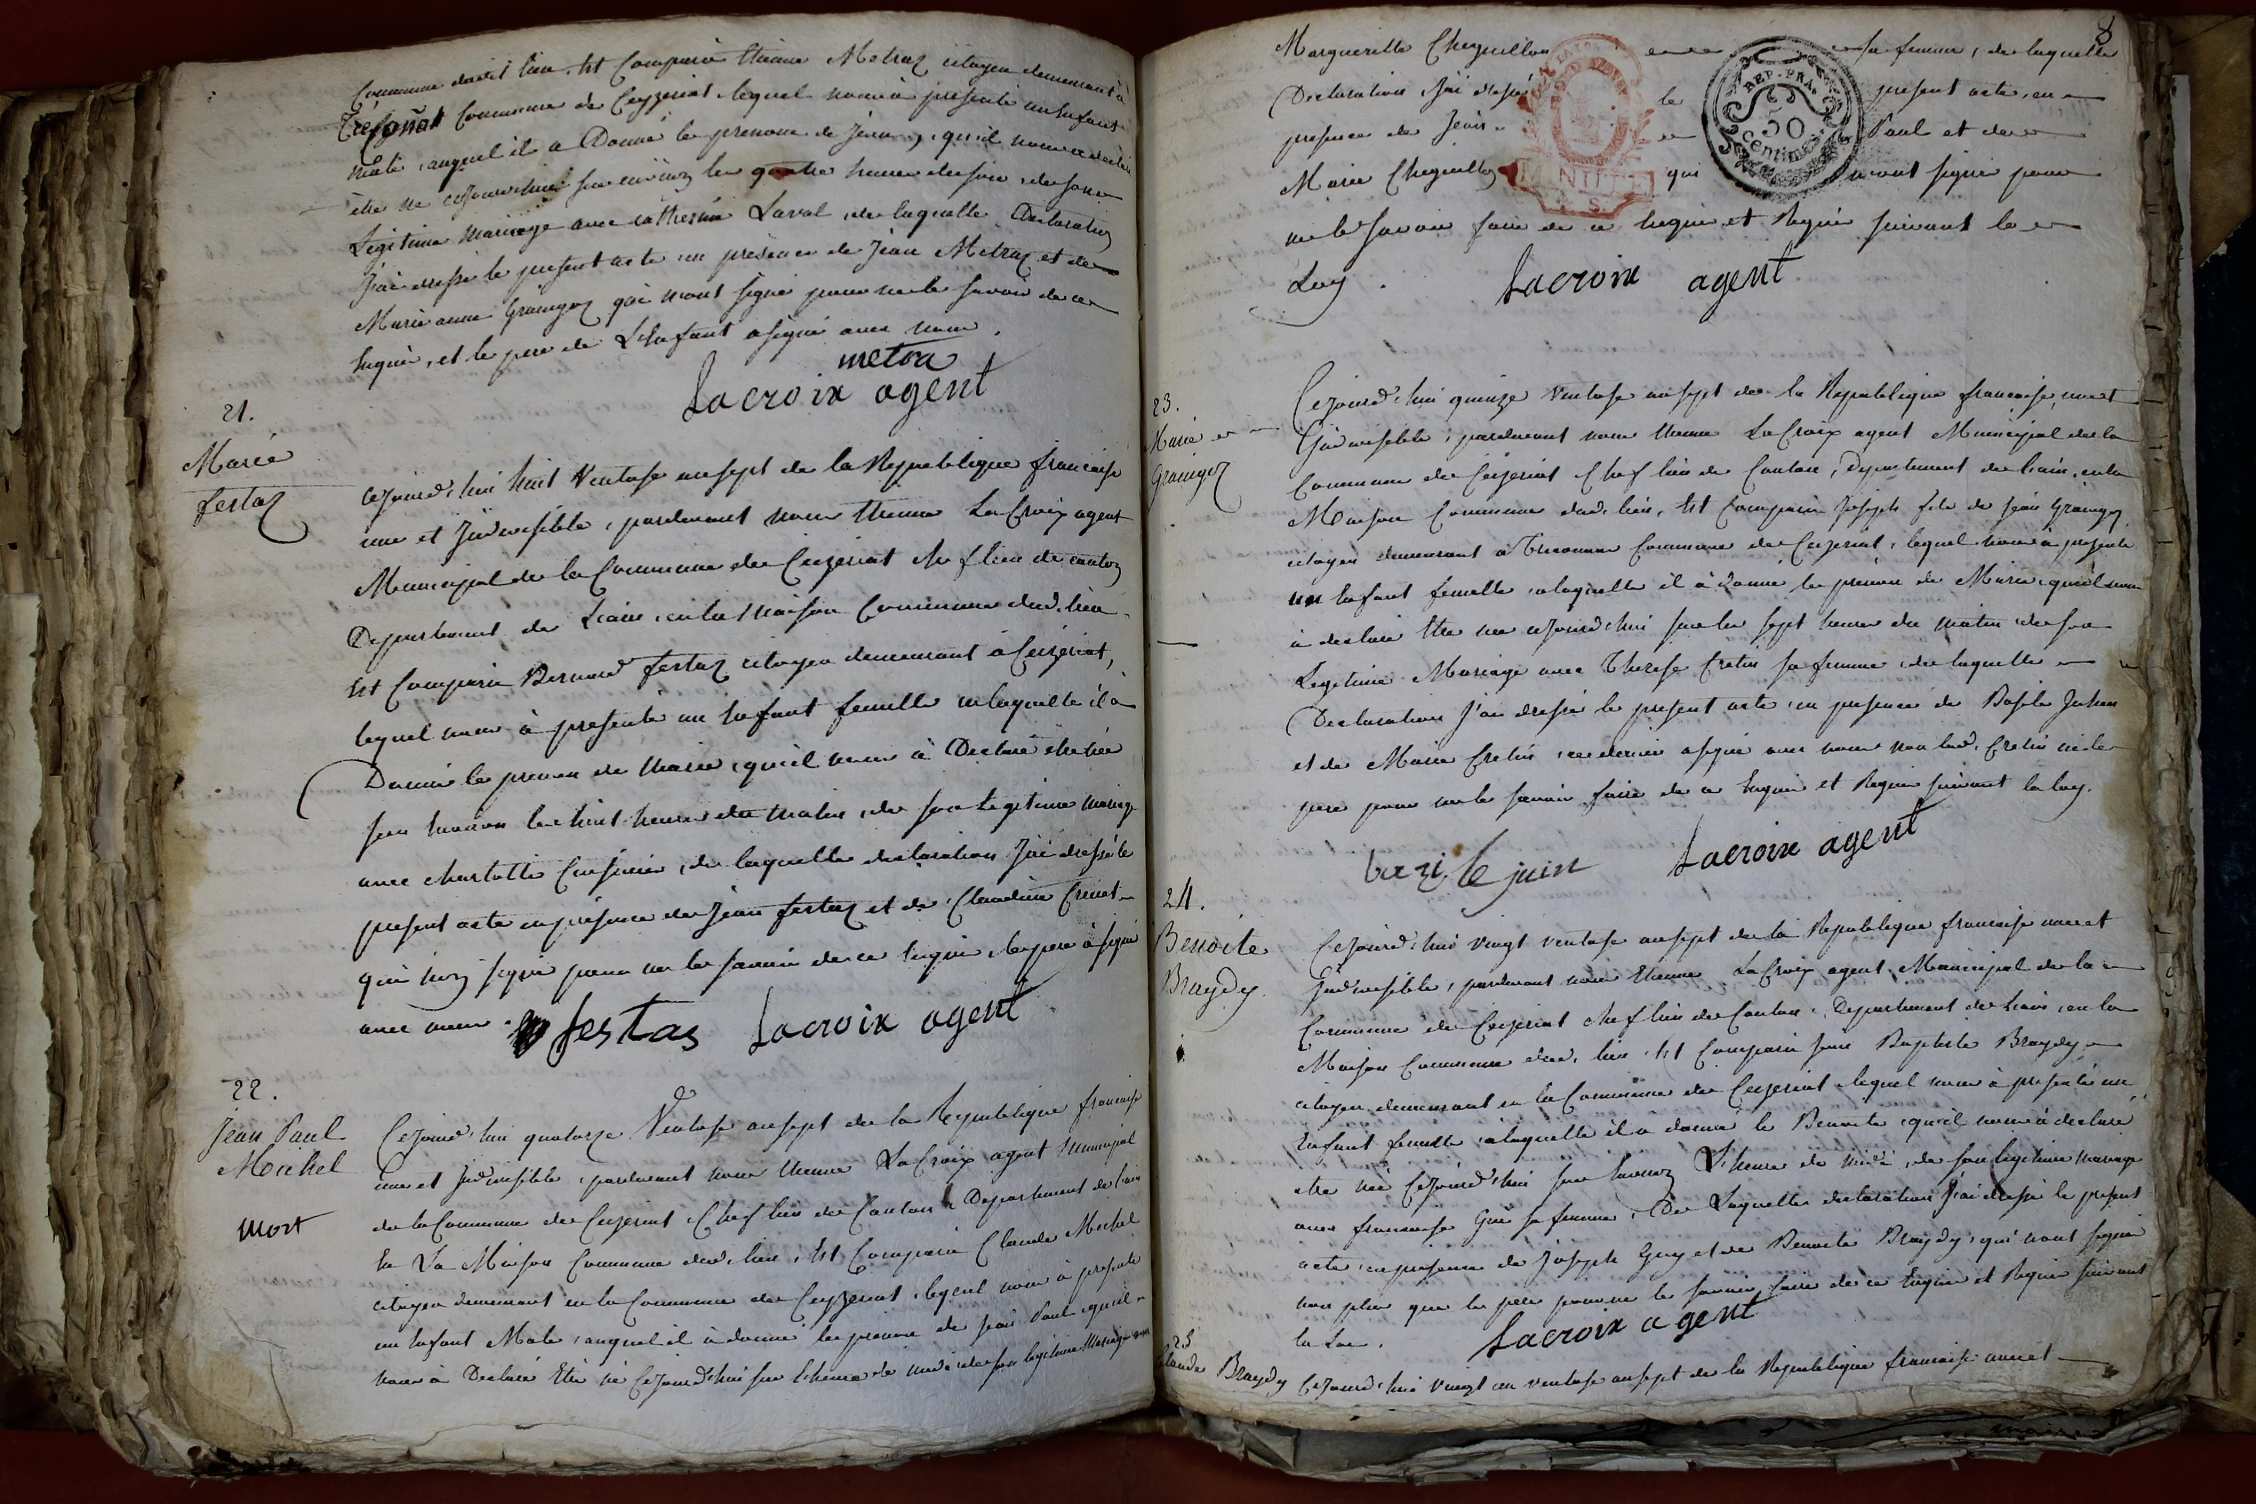 Commune dudit lieu. Est Comparu Etienne Metraz citoyen demeurant à
Tréfognat Commune de Ceyzeriat lequel nous à presenté un Enfant
Male, auquel il a Donné le prenom de Jean, qu'il nous a declaré
être né cejourdhui sur environ les quatre heures du soir, de son
Legitime Mariage avec catherine Laval, de laquelle Declaration
J'ai dressé le present acte en presence de Jean Metraz et de
Marie anne Grangez qui n'ont signé pour ne le savoir de ce
Enquis, et le pere de L'Enfant a signé avec nous.
metra
Lacroix agent
21.
Marie
festaz
cejourd'hui huit Ventose an sept de la Republique francaise
une et Jndivisible, pardevant nous Etienne LaCroix agent
Municipal de la Commune de Ceyzeriat Chef lieu de canton
Departement de L'ain, en la Maison Commune dud. lieu
Est Comparu Bernard festaz citoyen demeurant à Ceyzeriat,
lequel nous à presenté un Enfant femelle a laquelle il à
Donné le prenom de Marie, qu'il nous à Declaré etre née
sur environ les huit heures du Matin, de son Legitime Mariage
avec charlotte, de laquelle declaration J'ai dressé le
present acte en presence de Jean festaz et de Claudine
qui n'ont signé pour ne le savoir de ce Enquis, le pere à signé
avec nous.
festas Lacroix agent
22.
Jean Paul
Michel
mort
Cejourd'hui quatorze Ventose an sept de la Republique francaise
une et Jndivisible, pardevant nous Etienne LaCroix agent Municipal
de la Commune de Ceyzeriat, Chef lieu de Canton, Departement de l'ain
En La Maison Commune dud. lieu, Est Comparu Claude Michel
citoyen demeurant en la Commune de Ceyzeriat, lequel nous à presenté
un Enfant Male, auquel il à donné le prenom de Jean Paul, qu'il
nous à Declaré Etre né Cejourd'hui sur l'heure de midi de son legitime Mariage avec
8
Marguerite Cheguillon sa femme, de laquelle
Declaration j'ai dressé le present acte, en
presence de Jean Paul et de
Marie Cheguillon qui n'ont signé pour
ne le savoir faire de ce Enquis et Requis suivant la
Loy.
REP. FRA.
50
Centimes
Lacroix agent
23.
Marie
Grangez
Cejourd'hui quinze Ventose an sept de la Republique francaise, une et
Jndivisible, pardevant nous Etienne LaCroix agent Municipal de la
Commune de Ceyzeriat Chef lieu de Canton, Departement de l'ain, en la
Maison Commune dud. lieu, Est Comparu Joseph fils de Jean Grangez
citoyen demeurant à Commune de Ceyzeriat, lequel nous à presenté
un Enfant femelle, a laquelle il à donné le prenom de Marie, qu'il nous
à declaré Etre née cejourd'hui sur les sept heures du matin de son
Legitime Mariage avec Therese Cretin sa femme, de laquelle
Declaration J'ai dressé le present acte, en presence de Basile Juhen
et de Marie Cretin, ce dernier a signé avec nous non lad. Cretin ni le
pere pour ne le savoir faire de ce Enquis et Requis suivant la loy.
le juin Lacroix agent
24.
Benoite
Braydy
Cejourd'hui vingt ventose an sept de la Republique francaise une et
Jndivisible, pardevant nous Etienne LaCroix agent Municipal de la
Commune de Ceyzeriat chef lieu de Canton, Departement de l'ain, en la
Maison Commune dud. lieu, Est Comparu Jean Baptiste Braydy
citoyen demeurant en la Commune de Ceyzeriat lequel nous à presenté un
Enfant femelle a laquelle il a donné le Benoite, qu'il nous à declaré
etre née Cejourd'hui sur environ L'heure de midi, de son legitime mariage
avec francoise Guy sa femme, De Laquelle declaration J'ai dressé le present
acte, en presence de Joseph Guy et de Benoite Braydy, qui n'ont signé
non plus que le pere pour ne le savoir faire de ce Enquis et Requis suivant
la Loi.
Lacroix agent
25
Claude Braydy Cejourd'hui vingt un ventose an sept de la Republique francaise une et